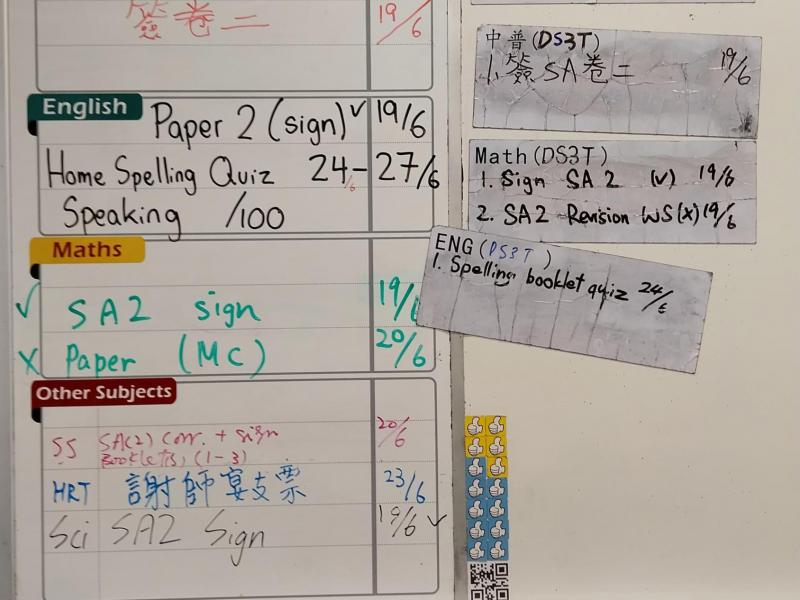 簽卷二 19/6
English
Paper 2 (sign) ✓ 19/6
Home Spelling Quiz 24/6 - 27/6
Speaking /100
Maths
✓ SA2 sign 19/6
X Paper (MC) 20/6
Other Subjects
SS SA(2) corr. + sign 20/6
Booklets (1-3)
HRT 謝師宴支票 23/6
Sci SA2 Sign 19/6 ✓
中普(DS3T)
1. 簽 SA卷二 19/6
Math(DS3T)
1. Sign SA 2 (v) 19/6
2. SA2 Revision WS(x) 19/6
ENG(DS3T)
1. Spelling booklet quiz 24/6